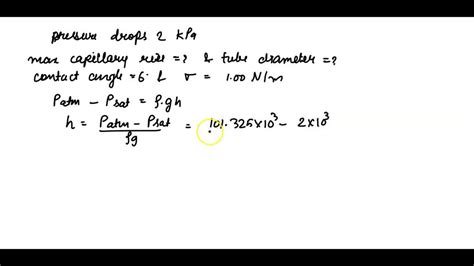 pressure drops 2 kPa
max capillary rise = ? & tube diameter = ?
contact angle = 6. & σ = 1.00 N/m
Patm – Psat = ρ.gh
h = Patm – Psat / ρg = 101.325×10³ – 2×10³